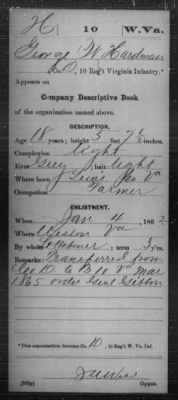 H | 10 | W. Va.
George W Hardman
Co. D, 10 Reg't Virginia Infantry.*
Appears on
Company Descriptive Book
of the organization named above.
DESCRIPTION.
Age 18 years; height 5 feet 7½ inches.
Complexion light
Eyes Grey; hair light
Where born Lewis Co Va
Occupation Farmer
ENLISTMENT.
When Jan 4, 1862
Where Weston Va
By whom; term 3 y'rs.
Remarks: Transferred from
Co D. to B 10 Va Mar
1865 order Genl Gibbon
*This organization became Co., 10 Reg't W. Va. Inf.
Copyist.